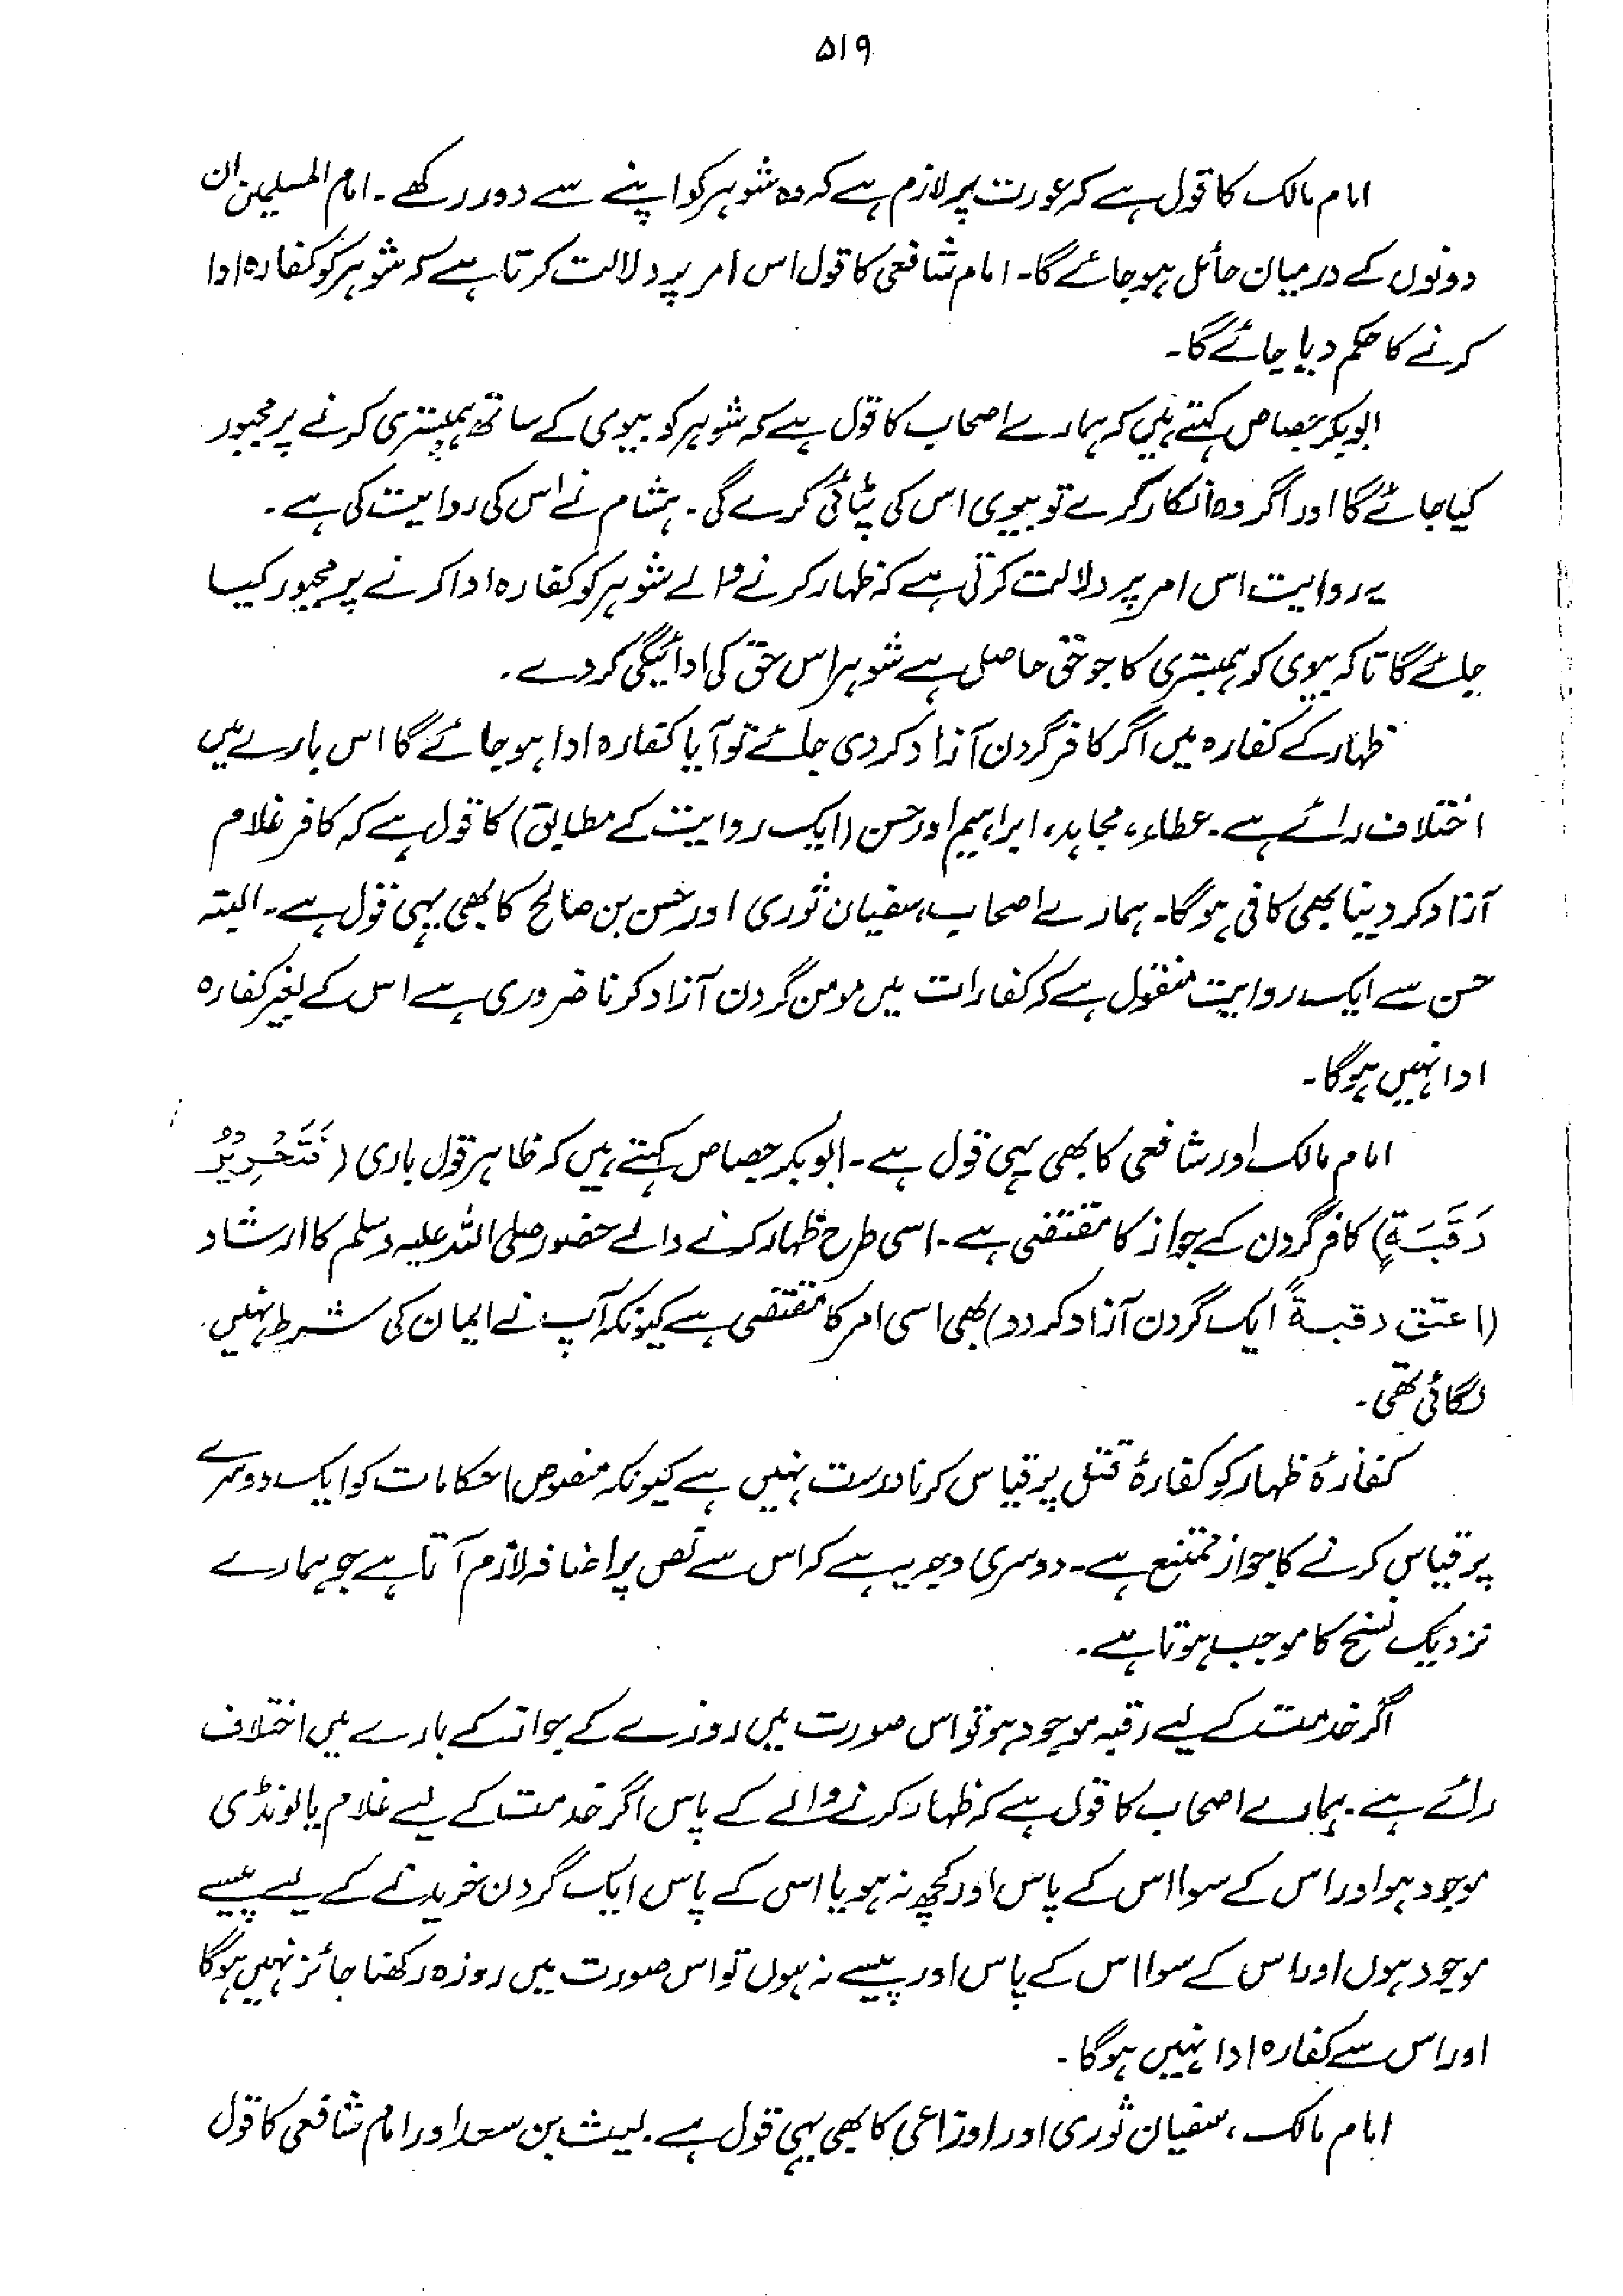 ۵۱۹
امام مالک کا قول ہے کہ عورت پر لازم ہے کہ وہ شوہر کو اپنے سے دور رکھے۔ امام المسلمین ان
دونوں کے درمیان حائل ہو جائے گا۔ امام شافعی کا قول اس امر پر دلالت کرتا ہے کہ شوہر کو کفارہ ادا
کرنے کا حکم دیا جائے گا۔
ابوبکر جصاص کہتے ہیں کہ ہمارے اصحاب کا قول ہے کہ شوہر کو بیوی کے ساتھ ہمبستری کرنے پر مجبور
کیا جائے گا اور اگر وہ انکار کرے تو بیوی اس کی پٹائی کرے گی۔ ہشام نے اس کی روایت کی ہے۔
یہ روایت اس امر پر دلالت کرتی ہے کہ ظہار کرنے والے شوہر کو کفارہ ادا کرنے پر مجبور کیا
جائے گا تاکہ بیوی کو ہمبستری کا جو حق حاصل ہے شوہر اس حق کی ادائیگی کر دے۔
ظہار کے کفارہ میں اگر کافر گردن آزاد کردی جائے تو آیا کفارہ ادا ہو جائے گا اس بارے میں
اختلاف رائے ہے۔ عطاء، مجاہد، ابراہیم اور حسن (ایک روایت کے مطابق) کا قول ہے کہ کافر غلام
آزاد کر دینا بھی کافی ہوگا۔ ہمارے اصحاب، سفیان ثوری اور حسن بن صالح کا بھی یہی قول ہے۔ البتہ
حسن سے ایک روایت منقول ہے کہ کفارات میں مومن گردن آزاد کرنا ضروری ہے اس کے بغیر کفارہ
ادا نہیں ہوگا۔
امام مالک اور شافعی کا بھی یہی قول ہے۔ ابوبکر جصاص کہتے ہیں کہ ظاہر قول باری (فَتَحْرِيرُ
رَقَبَةٍ) کافر گردن کے جواز کا مقتضی ہے۔ اسی طرح ظہار کرنے والے حضور صلی اللہ علیہ وسلم کا ارشاد
(اعتق رقبةً ایک گردن آزاد کردو) بھی اسی امر کا مقتضی ہے کیونکہ آپ نے ایمان کی شرط نہیں
لگائی تھی۔
کفارۂ ظہار کو کفارۂ قتل پر قیاس کرنا درست نہیں ہے کیونکہ منصوص احکامات کو ایک دوسرے
پر قیاس کرنے کا جواز ممتنع ہے۔ دوسری وجہ یہ ہے کہ اس سے نص پر اضافہ لازم آتا ہے جو ہمارے
نزدیک نسخ کا موجب ہوتا ہے۔
اگر خدمت کے لیے رقبہ موجود ہو تو اس صورت میں روزے کے جواز کے بارے میں اختلاف
رائے ہے۔ ہمارے اصحاب کا قول ہے کہ ظہار کرنے والے کے پاس اگر خدمت کے لیے غلام یا لونڈی
موجود ہو اور اس کے سوا اس کے پاس اور کچھ نہ ہو یا اسی کے پاس ایک گردن خریدنے کے لیے پیسے
موجود ہوں اور اس کے سوا اس کے پاس اور پیسے نہ ہوں تو اس صورت میں روزہ رکھنا جائز نہیں ہوگا
اور اس سے کفارہ ادا نہیں ہوگا۔
امام مالک، سفیان ثوری اور اوزاعی کا بھی یہی قول ہے۔ لیث بن سعد اور امام شافعی کا قول